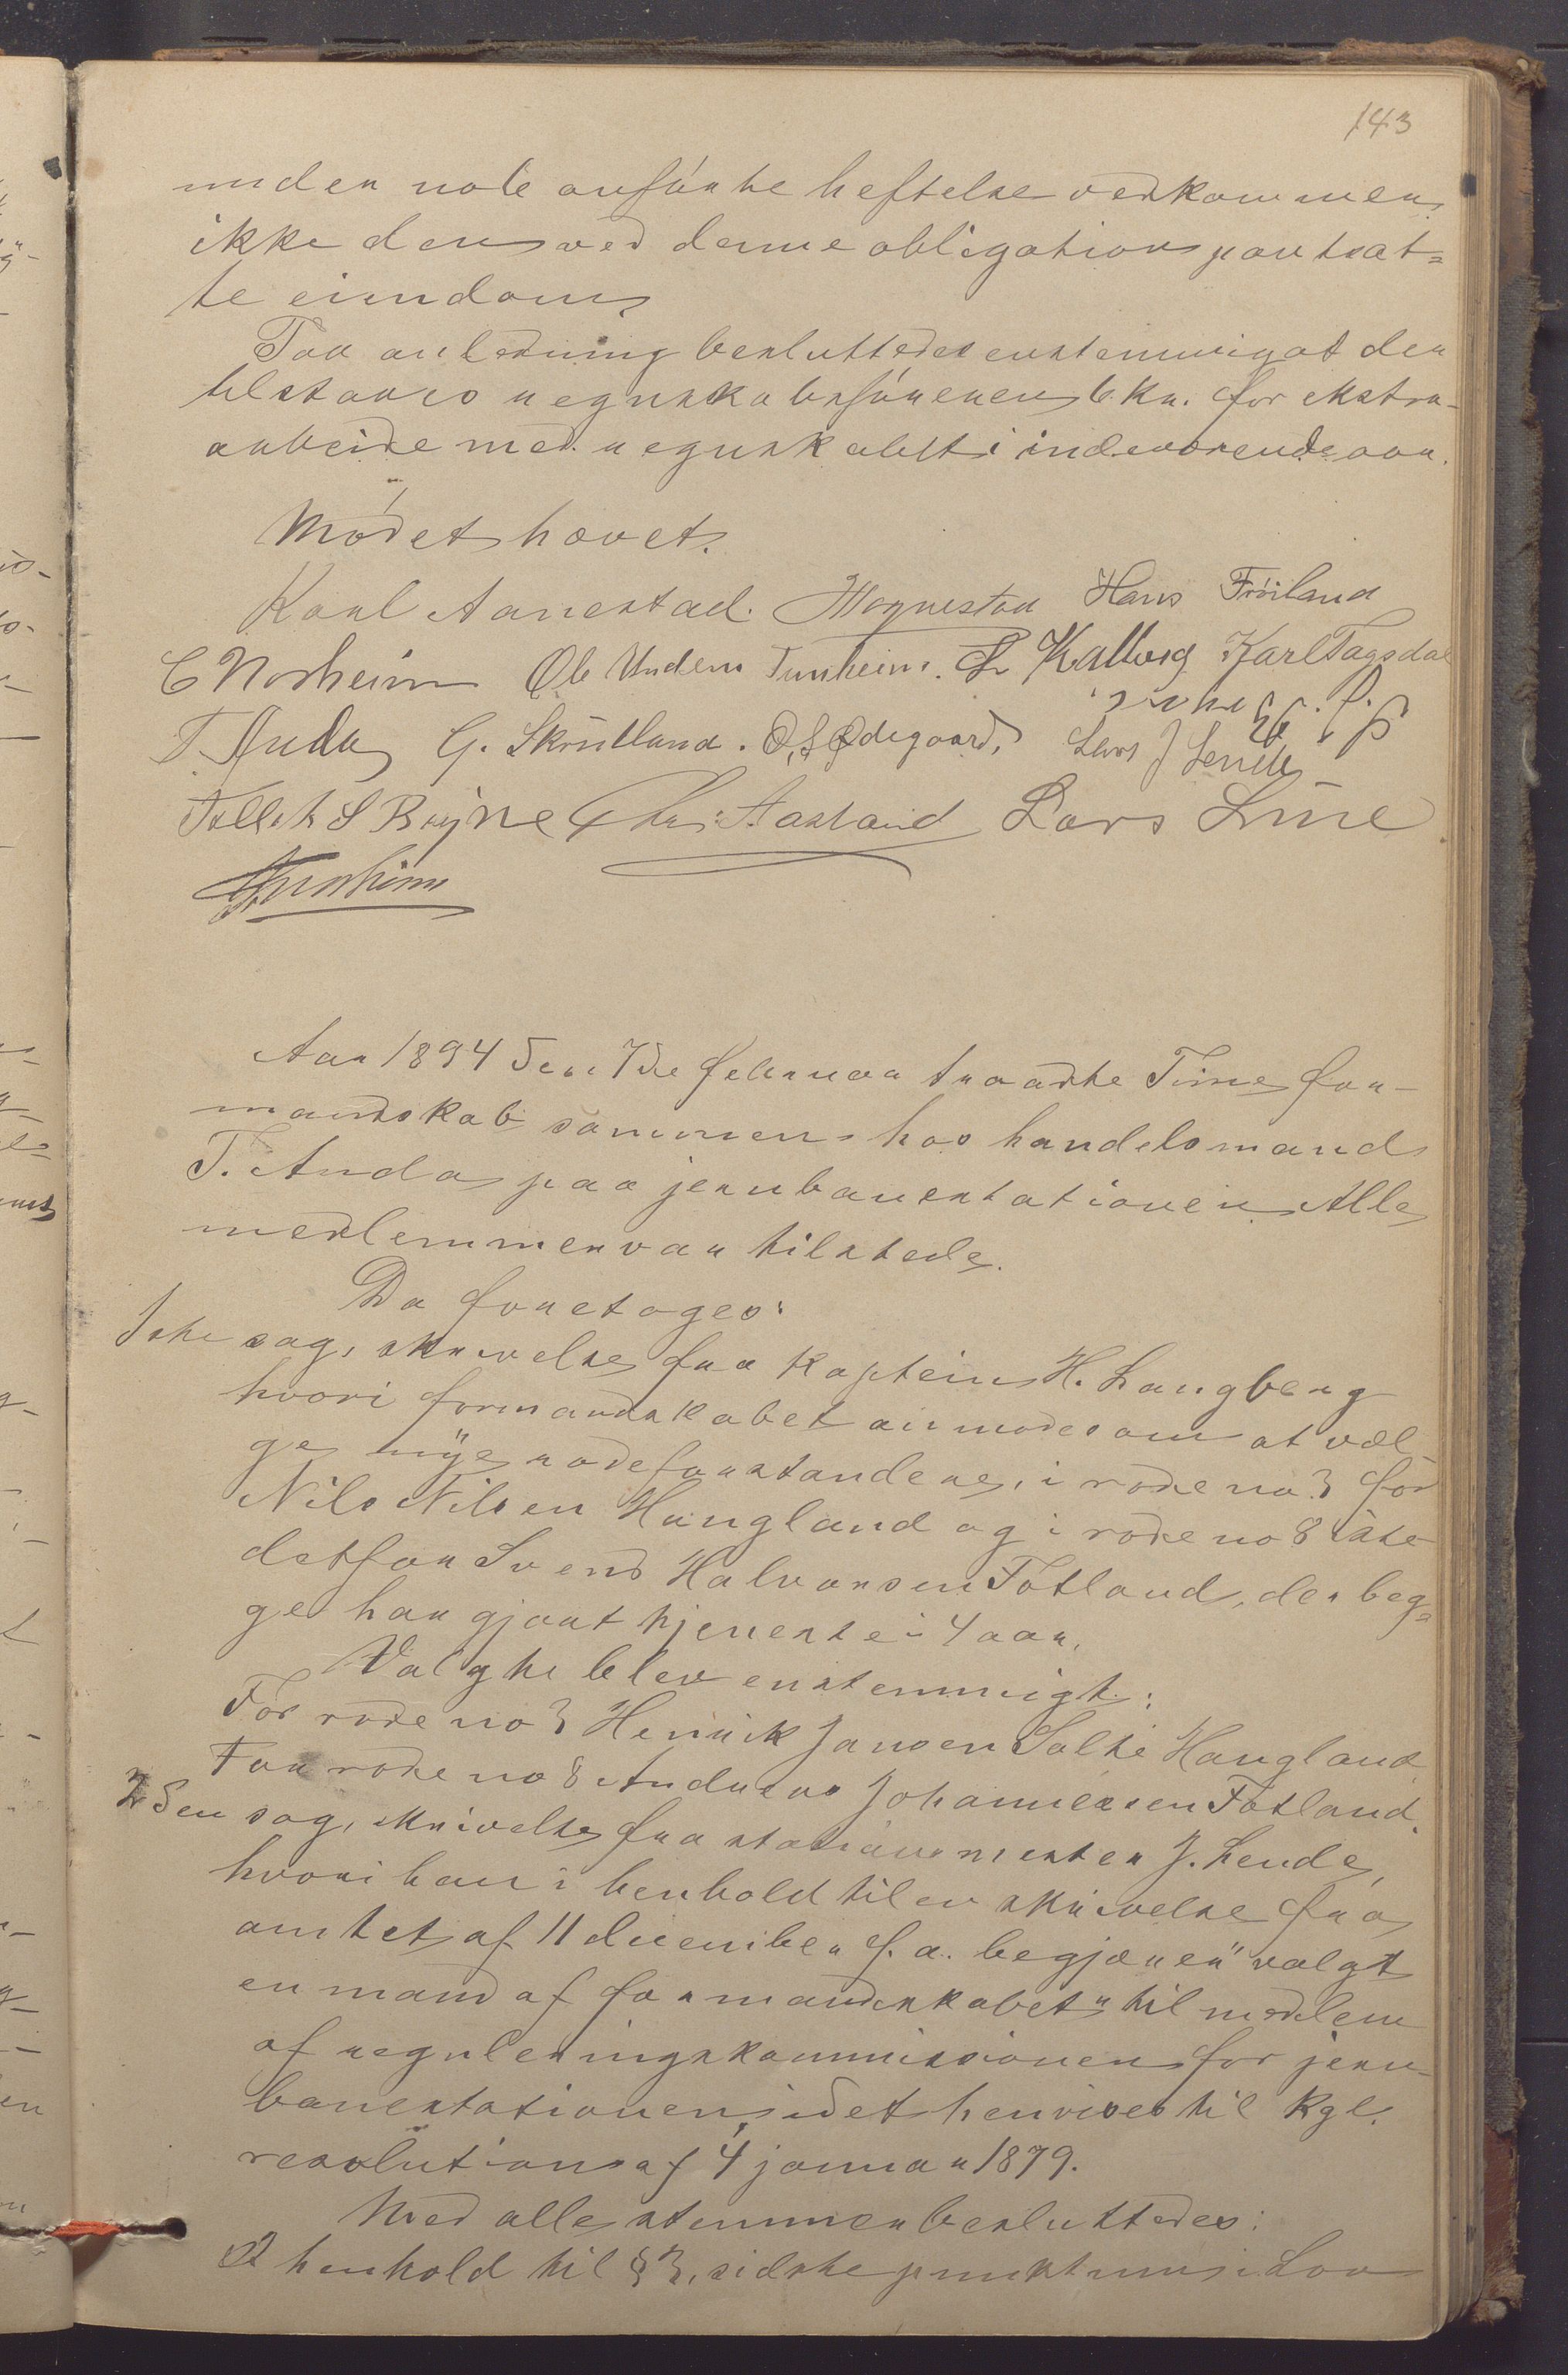 143
under note anførte heftelse vedkommer
ikke den ved denne obligation pantsat=
te eiendom
Paa anledning besluttedes enstemmigat der
tilstaaes regnskabsføreren 6 kr. for ekstra-
arbeide med regnskabet i indeværende aar.
Mødet hævet.
Karl Aanestad. Mognestad Hans Frøiland
C Norheim Ole Undem Tunheim. L Kalberg Karl Tagsdal
T. Anda G. Skrudland. O. S. Ødegaard, Lars J Lende
Tollek S Bryne Chr. Aasland Lars Line
Aar 1894 den 7de februar traadte Time for-
mandskab sammen hos handelsmand
T. Anda paa jernbanestationen. Alle
medlemmer var tilstede.
Da foretoges:
1ste sag, skrivelse fra kaptein H. Langberg
hvori formandskabet anmodes om at væl-
ge nye rodeforstandere, i rode no 3 for
Nils Nilsen Haugland og i rode no 8 iste-
detfor Svend Halvorsen Fotland, der beg=
ge har gjort tjeneste i 4 aar.
Valgte blev enstemmigt:
For rode no 3 Henrik Jansen Salte Haugland.
For rode no 8 Andreas Johannessen Fotland.
2den sag, skrivelse fra stationsmester J. Lende,
hvori han i henhold til en skrivelse fra
amtet af 11 december f. a. begjærer "valgt
en mand af formandskabet" til medlem
af reguleringskommissionen for jern-
banestationen, idet henvises til kgl.
resolution af 4 januar 1879.
Med alle stemmer besluttedes:
I henhold til § 3, sidste punktum i Lov